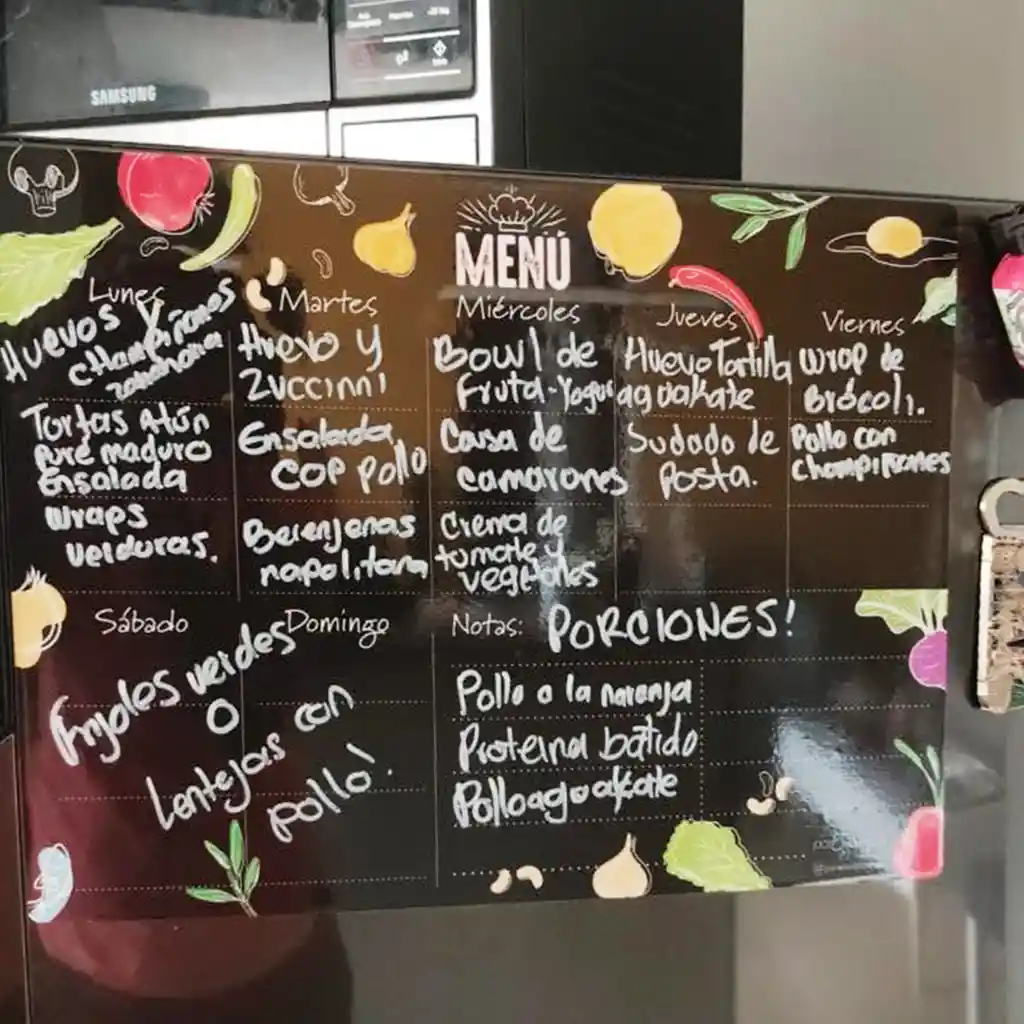 SAMSUNG
MENÚ
Lunes
Huevos y
champiñones
zanahoria
Tortas Atún
Puré maduro
Ensalada
Wraps
verduras.
Martes
Huevo y
Zuccini
Ensalada
COP pollo
Berenjenas
napolitana
Miércoles
Bowl de
Fruta-Yogur
Casa de
camarones
Crema de
tomate y
vegetales
Jueves
Huevo Tortilla
aguakate
Sudado de
Posta.
Viernes
wrap de
Brócoli.
Pollo con
champiñones
Sábado
Domingo
Frijoles verdes
O
Lentejas con
pollo!
Notas: PORCIONES!
Pollo a la naranja
Proteina batido
Pollo aguakate